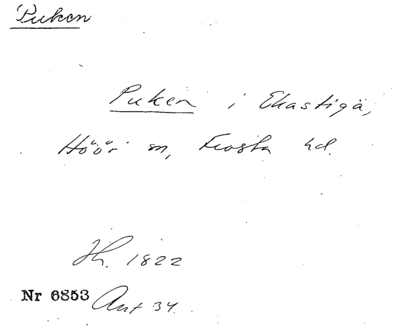 Puken
Puken i Ekastigå,
Höör sn, Frosta hd.
Hs. 1822
Nr 6853 Ant 34.